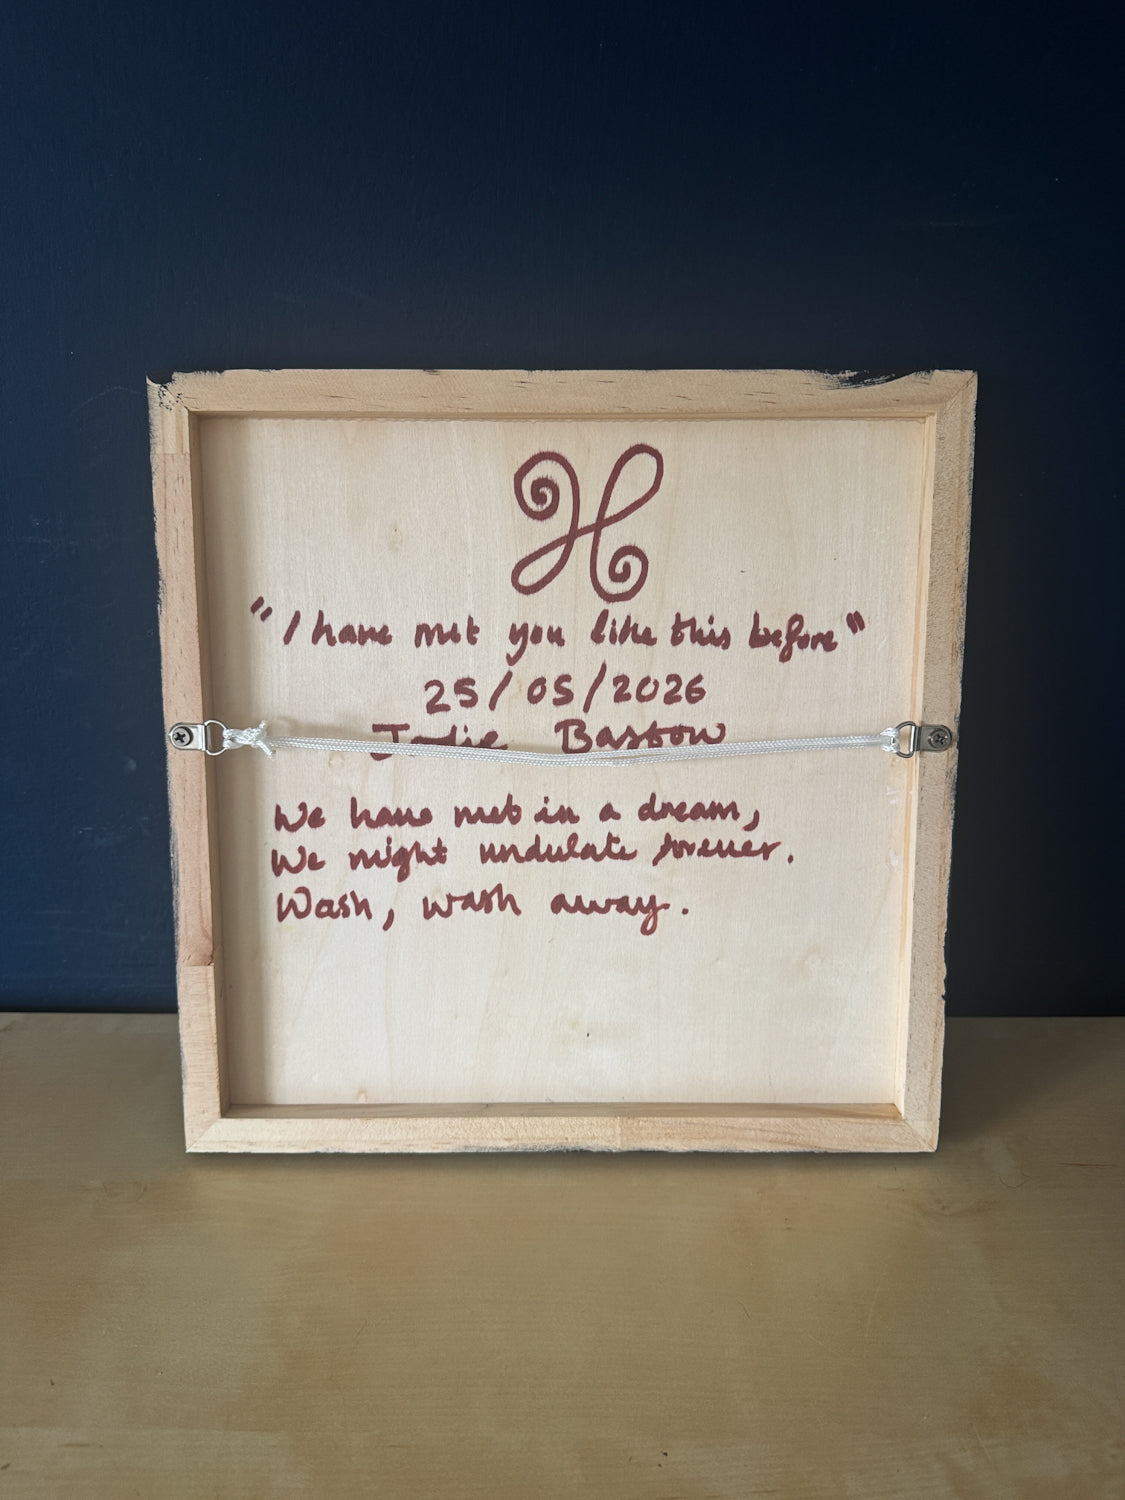 "I have met you like this before"
25/05/2026
Jodie Bastow
We have met in a dream,
We might undulate forever.
Wash, wash away.